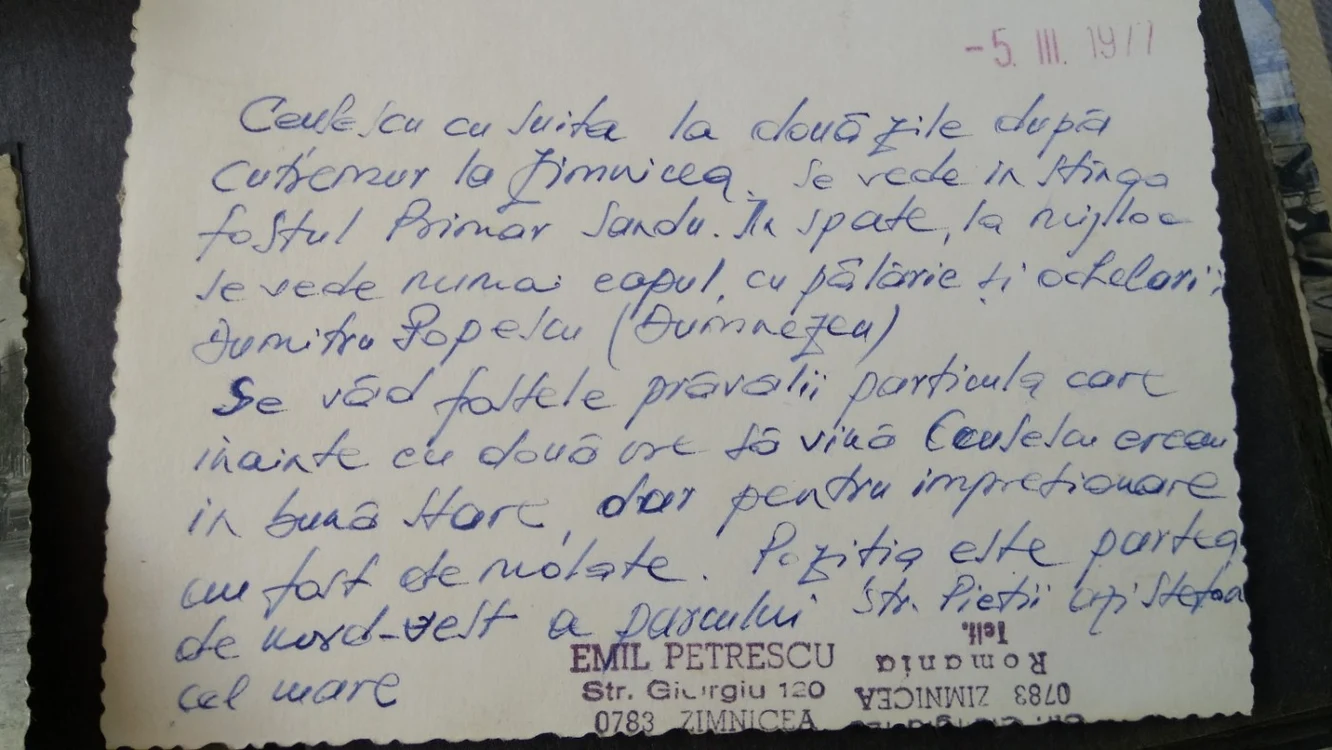 -5. III. 1977
Ceușescu cu suita la două zile după
cutremur la Zimnicea. Se vede in stînga
fostul Primar Sandu. In spate, la mijloc
se vede numai capul, cu pălărie și ochelarii,
Dumitru Popescu (Dumnezeu)
Se văd fostele prăvălii particula care
inainte cu două ore să vină Ceușescu erau
in bună stare, dar pentru impreționare
au fost demolate. Poziția este partea
de nord-vest a parcului str. Pieții Ștefan
cel mare
EMIL PETRESCU
Str. Giurgiu 120
0783 ZIMNICEA
Telf.
Romania
0783 ZIMNICEA